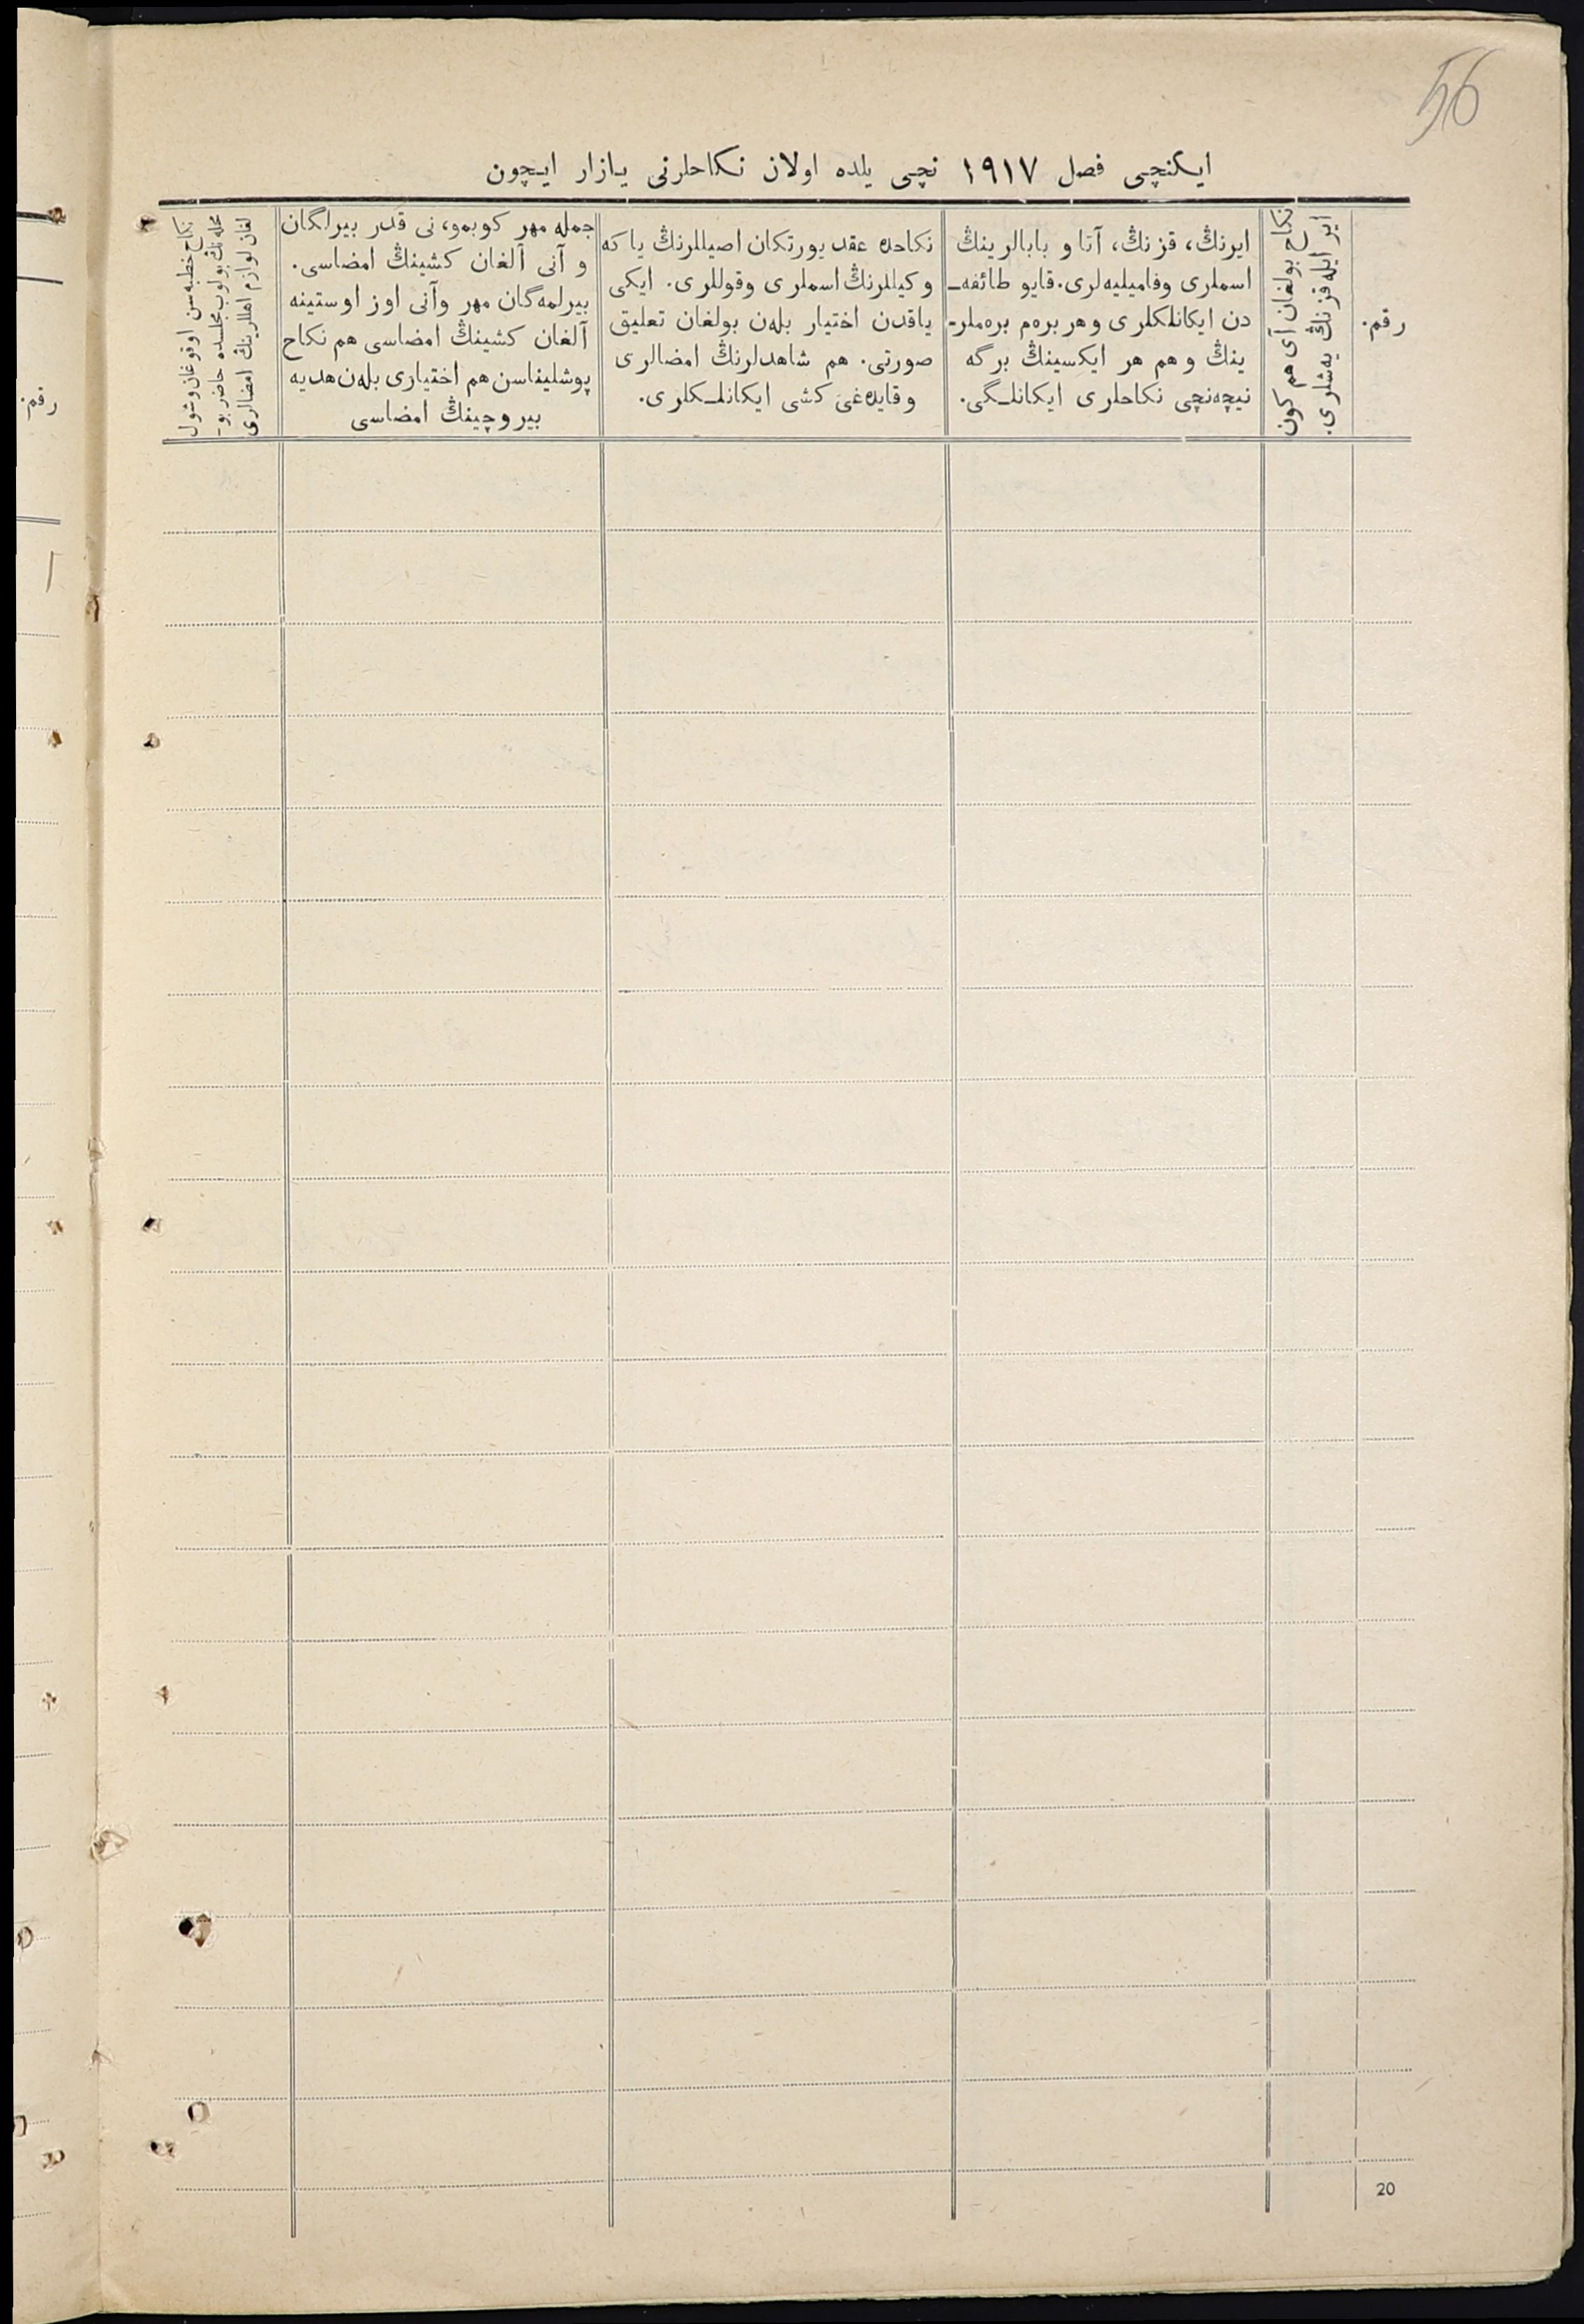 56
ایکنچی فصل ١٩١٧ نچی یلده اولان نکاحلرنی یازار ایچون
رقم.
نکاح بولغان آی هم کون
ایر ایله قزنڭ یه‌شلری.
ایرنڭ، قزنڭ، آتا و بابالرینڭ
اسملری وفامیلیه‌لری. قایو طائفه‌ـ
دن ایکانلکلری وهر بره‌م بره‌ملر-
ینڭ و هم هر ایکسینڭ برگه
نیچه‌نچی نکاحلری ایکانلـگی.
نکاحده عقد یورتکان اصیللرنڭ یا که
وکیللرنڭ اسملری وقوللری. ایکی
یاقدن اختیار بله‌ن بولغان تعلیق
صورتی. هم شاهدلرنڭ امضالری
وقایده‌غی کشی ایکانلـکلری.
جمله مهر کوبمو، نی قدر بیرلگان
و آنی آلغان کشینڭ امضاسی.
بیرلمه‌گان مهر وآنی اوز اوستینه
آلغان کشینڭ امضاسی هم نکاح
پوشلیناسن هم اختیاری بله‌ن هدیه
بیروچینڭ امضاسی
نکاح خطبه‌سن اوقوغان وشول
محله‌نڭ بولوب مجلسده حاضر بو-
لغان لوازم اهللرینڭ امضالری
رقم.
20